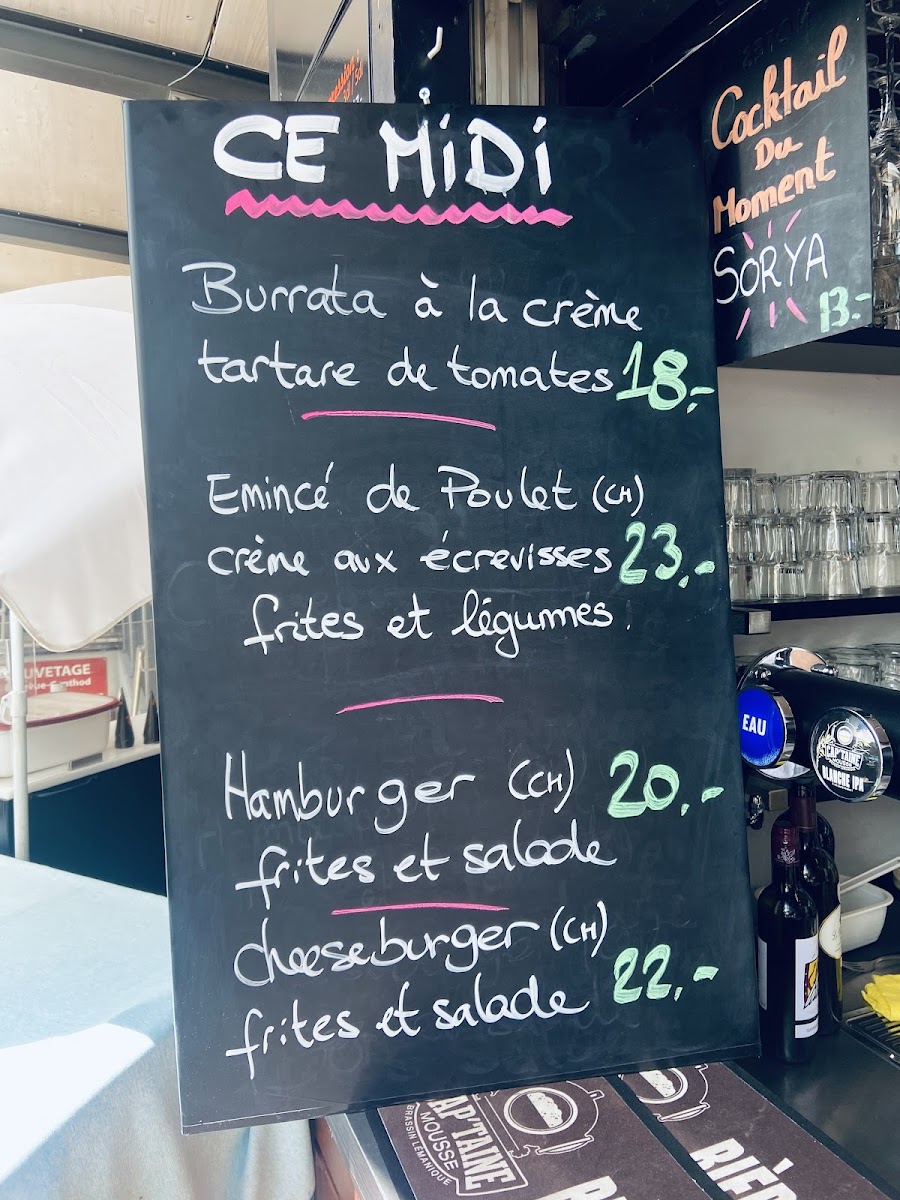 CE MiDi
Burrata à la crème
tartare de tomates 18.-
Emincé de Poulet (CH)
crème aux écrevisses 23.-
frites et légumes.
Hamburger (CH) 20.-
frites et salade
cheeseburger (CH)
frites et salade 22.-
Cocktail
Du
Moment
SORYA
13.-
UVETAGE
EAU
CAP'TAINE
MOUSSE
BLANCHE IPA
CAP'TAINE
MOUSSE
BRASSIN LÉMANIQUE
BIÈ